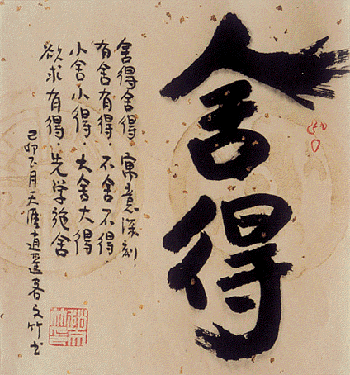 舍得
舍得舍得 寓意深刻
有舍有得 不舍不得
小舍小得 大舍大得
欲求有得 先学施舍
己卯八月天涯逍遥客文竹书